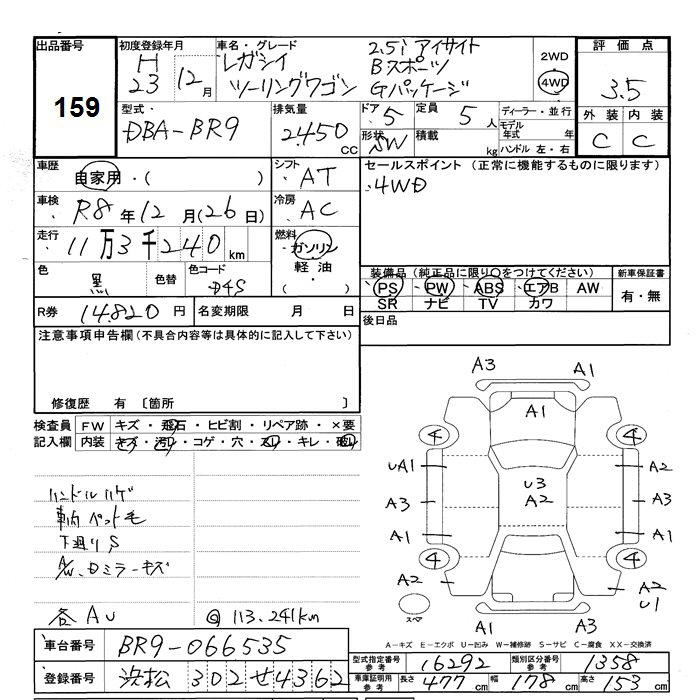 出品番号
159
初度登録年月
H
23 12月
車名・グレード
レガシイ
ツーリングワゴン
2.5i アイサイト
Bスポーツ
Gパッケージ
2WD
4WD
評価点
3.5
外装 内装
C C
型式・
DBA-BR9
排気量
2450
CC
ドア 5
形状 SW
定員 5 人
積載 kg
ディーラー・並行
モデル年式 年
ハンドル 左・右
車歴
自家用・( )
シフト AT
車検
R8年12月(26日)
冷房 AC
走行
11万3千240km
燃料
ガソリン
軽油・
( )
色
黒
色替
色コード
D4S
R券 14,820円
名変期限 月 日
セールスポイント (正常に機能するものに限ります)
4WD
装備品(純正品に限り○をつけてください)
PS PW ABS エアB AW
SR ナビ TV カワ
新車保証書
有・無
後日品
注意事項申告欄(不具合内容等は具体的に記入して下さい)
修復歴 有 〔箇所 〕
検査員記入欄
FW キズ・飛石・ヒビ割・リペア跡・×要
内装 キズ・汚レ・コゲ・穴・スレ・キレ・破レ
ハンドルハゲ
車内ペット毛
下廻りS
A/W、Dミラーキズ
各AU
@113.241km
A3
A1
A1
4
4
UA1
A2
U3
A2
A3
A3
A1
A1
4
4
A2
A2
U1
スペア
A3
A1
A-キズ E-エクボ U-凹み W-補修跡 S-サビ C-腐食 XX-交換済
車台番号 BR9-066535
登録番号 浜松 302 せ 4362
型式指定番号 参考 16292
類別区分番号 参考 1358
車庫証明用 参考 長さ 477cm 幅 178cm 高さ 153cm